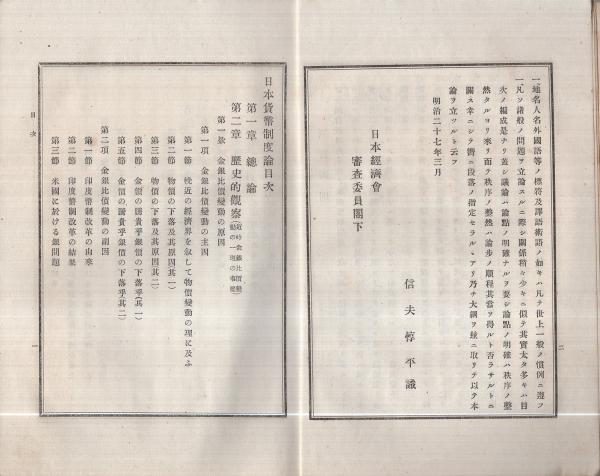 一地名人名外國語等ノ標符及譯語術語ノ如キハ凡テ世上一般ノ慣例ニ遵フ
一凡ソ諸般ノ問題ヲ立論スルニ際シ關係稍々少キニ似テ其實太タ多キハ目
次ノ編成是ナリ蓋シ議論ハ論點ノ明確ナルヲ要シ論點ノ明確ハ秩序ノ整
然タルヨリ來リ而テ秩序ノ整然ハ論步ノ順程其當ヲ得ルト否ラサルトニ
關ス幸ニシテ嚮ニ段落ノ指定セラルヽアリ乃チ大綱ヲ玆ニ取リテ以テ本
論ヲ立ツルト云フ
明治二十七年三月
日本經濟會
審査委員閣下
信夫惇平識
二
日本貨幣制度論目次
第一章 總論
第二章 歷史的觀察(近時金銀比價變動の一斑の事歷)
第一款 金銀比價變動の原因
第一項 金銀比價變動の主因
第一節 晩近の經濟界を叙して物價變動の理に及ふ
第二節 物價の下落及其原因(其一)
第三節 物價の下落及其原因(其二)
第四節 金價の騰貴乎銀價の下落乎(其一)
第五節 金價の騰貴乎銀價の下落乎(其二)
第二項 金銀比價變動の副因
第一節 印度幣制改革の由來
第二節 印度幣制改革の結果
第三節 米國に於ける銀問題
目次
一